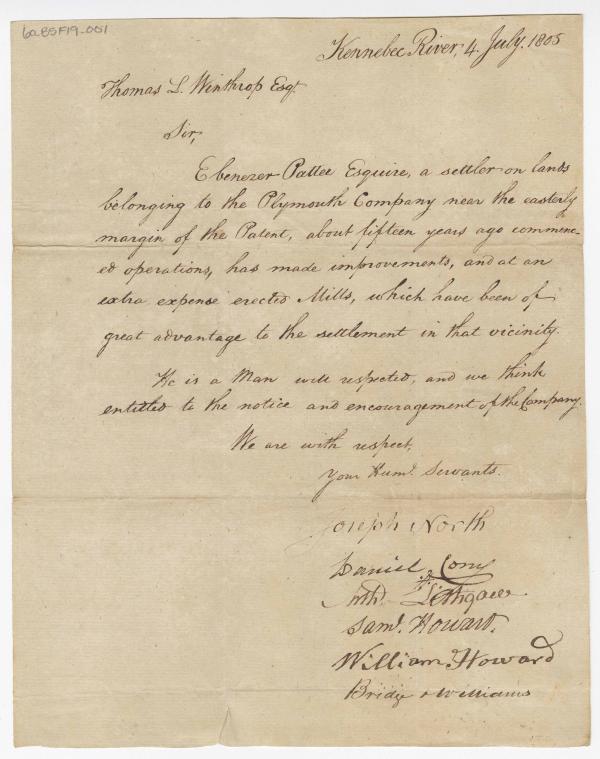 6a85F19_001
Kennebec River, 4. July. 1805
Thomas L. Winthrop Esqr.
Sir,
Ebenezer Pattee Esquire, a settler on lands
belonging to the Plymouth Company near the easterly
margin of the Patent, about fifteen years ago commenc-
ed operations, has made improvements, and at an
extra expense erected Mills, which have been of
great advantage to the settlement in that vicinity.
He is a Man well respected, and we think
entitled to the notice and encouragement of the Company.
We are with respect,
Your Huml. Servants.
Joseph North
Daniel Cony
Lithgow
Saml. Howard.
William Howard
Bridge & Williams